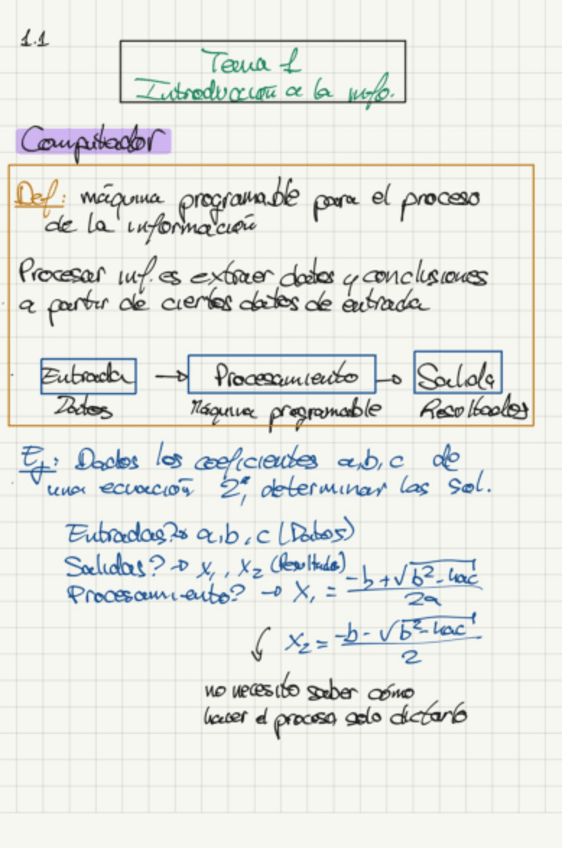 1.1
Tema 1
Introducción a la info.
Computador
Def: máquina programable para el proceso
de la información
Procesar inf. es extraer datos y conclusiones
a partir de ciertos datos de entrada
Entrada → Procesamiento → Salida
Datos Máquina programable Resultados
Ej: Dados los coeficientes a,b,c de
una ecuación 2ª, determinar las sol.
Entradas? → a,b,c (Datos)
Salidas? → x₁, x₂ (Resultados)
Procesamiento? → x₁ = -b+√b²-4ac / 2a
x₂ = -b-√b²-4ac / 2
no necesito saber cómo
hacer el proceso, solo dictarlo